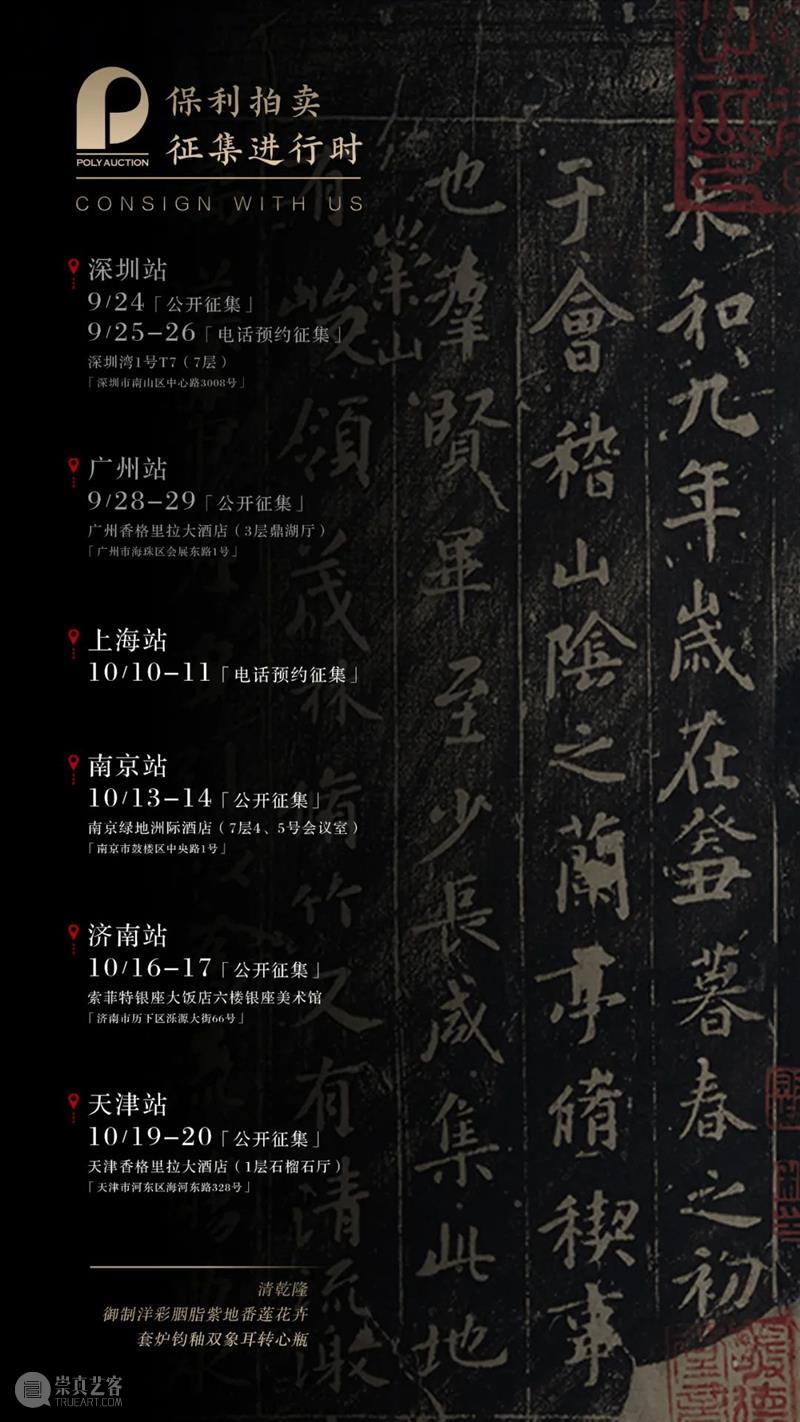 保利拍卖
征集进行时
POLY AUCTION
CONSIGN WITH US
深圳站
9/24「公开征集」
9/25–26「电话预约征集」
深圳湾1号T7（7层）
「深圳市南山区中心路3008号」
广州站
9/28–29「公开征集」
广州香格里拉大酒店（3层鼎湖厅）
「广州市海珠区会展东路1号」
上海站
10/10–11「电话预约征集」
南京站
10/13–14「公开征集」
南京绿地洲际酒店（7层4、5号会议室）
「南京市鼓楼区中央路1号」
济南站
10/16–17「公开征集」
索菲特银座大饭店六楼银座美术馆
「济南市历下区泺源大街66号」
天津站
10/19–20「公开征集」
天津香格里拉大酒店（1层石榴石厅）
「天津市河东区海河东路328号」
清乾隆
御制洋彩胭脂紫地番莲花卉
套炉钧釉双象耳转心瓶
永和九年岁在癸丑暮春之初
于會稽山陰之蘭亭脩稧事
也羣賢畢至少長咸集此地
有崇山
峻領茂林脩竹又有清流激
崇真艺客
TRUEART.COM